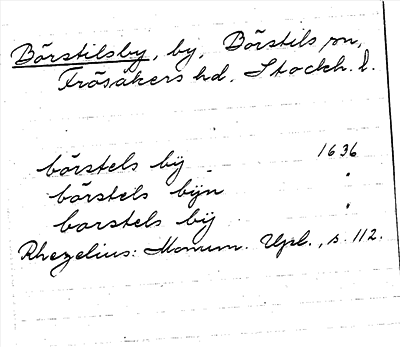 Börstilsby, by, Börstils sn,
Frösåkers hd, Stockh. l.
börstels bÿ 1636
börstels bÿn "
borstels bÿ "
Rhezelius: Monum. Upl., s. 112.